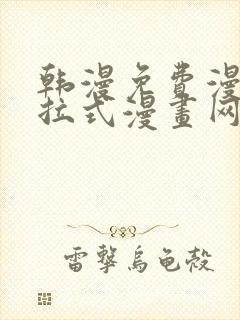 韩漫免费漫
拉式漫畫网
雷擊烏龟殼